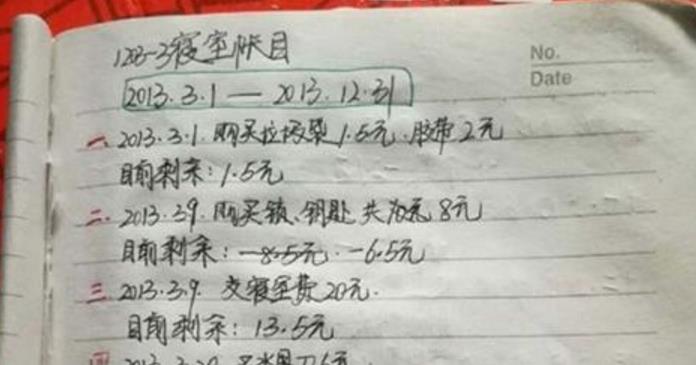 1203-3寝室帐目
No.
Date
2013.3.1 — 2013.12.31
一. 2013.3.1. 购买垃圾袋1.5元、胶带2元
目前剩余: 1.5元
二. 2013.3.9. 购买锁、钥匙 共 8元
目前剩余: -6.5元
三. 2013.3.9. 交寝室费20元.
目前剩余: 13.5元
四